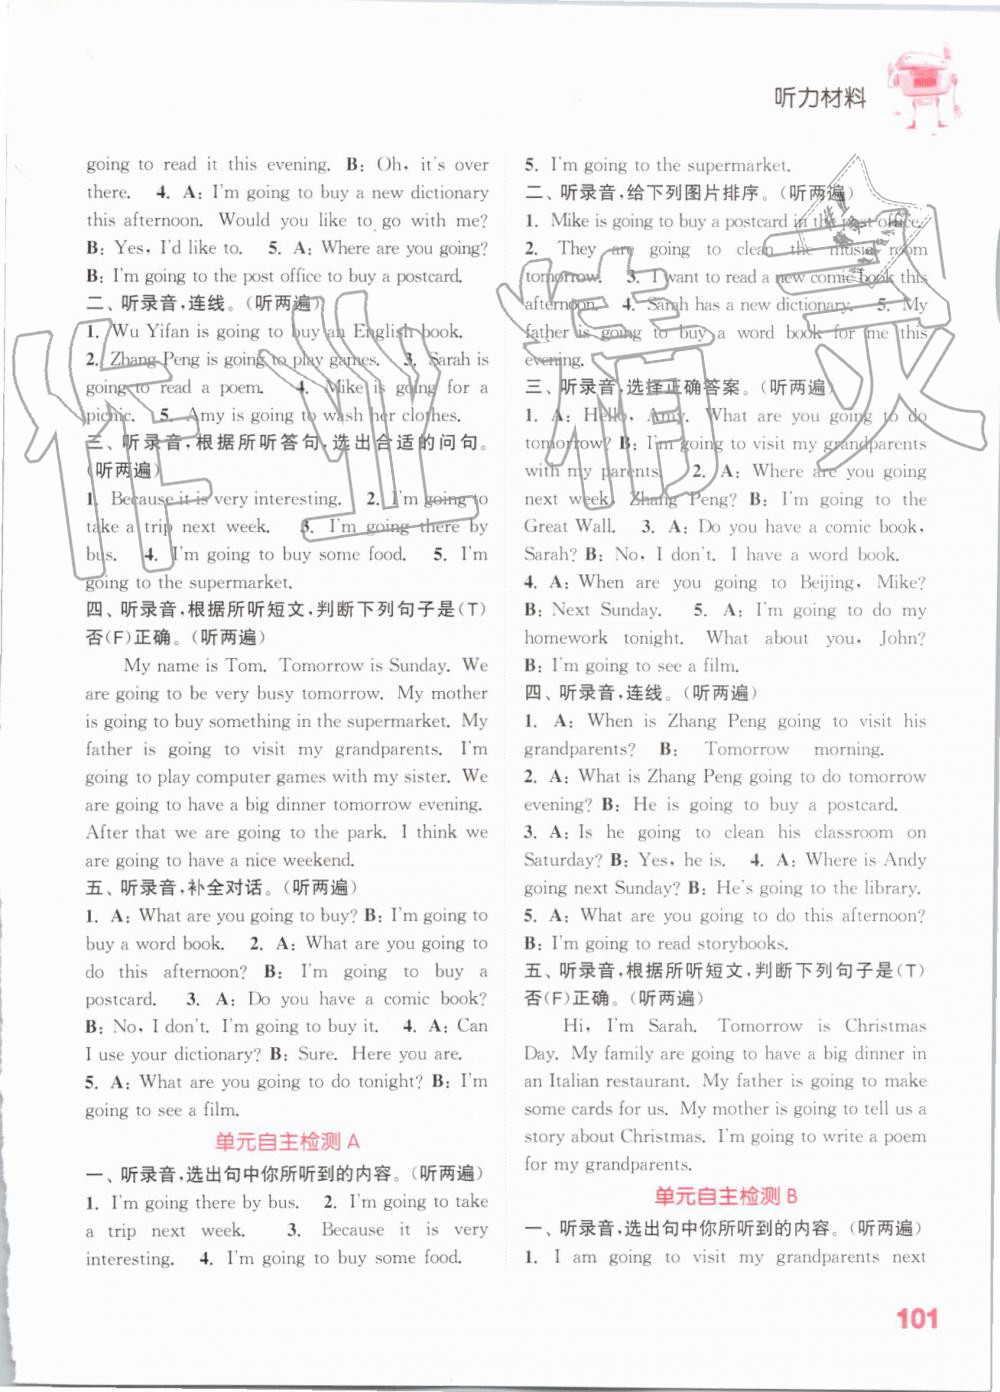 听力材料
going to read it this evening. B: Oh, it's over
there. 4. A: I'm going to buy a new dictionary
this afternoon. Would you like to go with me?
B: Yes, I'd like to. 5. A: Where are you going?
B: I'm going to the post office to buy a postcard.
二、听录音,连线。(听两遍)
1. Wu Yifan is going to buy an English book.
2. Zhang Peng is going to play games. 3. Sarah is
going to read a poem. 4. Mike is going for a
picnic. 5. Amy is going to wash her clothes.
三、听录音,根据所听答句,选出合适的问句。
(听两遍)
1. Because it is very interesting. 2. I'm going to
take a trip next week. 3. I'm going there by
bus. 4. I'm going to buy some food. 5. I'm
going to the supermarket.
四、听录音,根据所听短文,判断下列句子是(T)
否(F)正确。(听两遍)
My name is Tom. Tomorrow is Sunday. We
are going to be very busy tomorrow. My mother
is going to buy something in the supermarket. My
father is going to visit my grandparents. I'm
going to play computer games with my sister. We
are going to have a big dinner tomorrow evening.
After that we are going to the park. I think we
are going to have a nice weekend.
五、听录音,补全对话。(听两遍)
1. A: What are you going to buy? B: I'm going to
buy a word book. 2. A: What are you going to
do this afternoon? B: I'm going to buy a
postcard. 3. A: Do you have a comic book?
B: No, I don't. I'm going to buy it. 4. A: Can
I use your dictionary? B: Sure. Here you are.
5. A: What are you going to do tonight? B: I'm
going to see a film.
单元自主检测 A
一、听录音,选出句中你所听到的内容。(听两遍)
1. I'm going there by bus. 2. I'm going to take
a trip next week. 3. Because it is very
interesting. 4. I'm going to buy some food.
5. I'm going to the supermarket.
二、听录音,给下列图片排序。(听两遍)
1. Mike is going to buy a postcard in the post office.
2. They are going to clean the music room
tomorrow. 3. I want to read a new comic book this
afternoon. 4. Sarah has a new dictionary. 5. My
father is going to buy a word book for me this
evening.
三、听录音,选择正确答案。(听两遍)
1. A: Hello, Amy. What are you going to do
tomorrow? B: I'm going to visit my grandparents
with my parents. 2. A: Where are you going
next week, Zhang Peng? B: I'm going to the
Great Wall. 3. A: Do you have a comic book,
Sarah? B: No, I don't. I have a word book.
4. A: When are you going to Beijing, Mike?
B: Next Sunday. 5. A: I'm going to do my
homework tonight. What about you, John?
B: I'm going to see a film.
四、听录音,连线。(听两遍)
1. A: When is Zhang Peng going to visit his
grandparents? B: Tomorrow morning.
2. A: What is Zhang Peng going to do tomorrow
evening? B: He is going to buy a postcard.
3. A: Is he going to clean his classroom on
Saturday? B: Yes, he is. 4. A: Where is Andy
going next Sunday? B: He's going to the library.
5. A: What are you going to do this afternoon?
B: I'm going to read storybooks.
五、听录音,根据所听短文,判断下列句子是(T)
否(F)正确。(听两遍)
Hi, I'm Sarah. Tomorrow is Christmas
Day. My family are going to have a big dinner in
an Italian restaurant. My father is going to make
some cards for us. My mother is going to tell us a
story about Christmas. I'm going to write a poem
for my grandparents.
单元自主检测 B
一、听录音,选出句中你所听到的内容。(听两遍)
1. I am going to visit my grandparents next
101
作业精灵